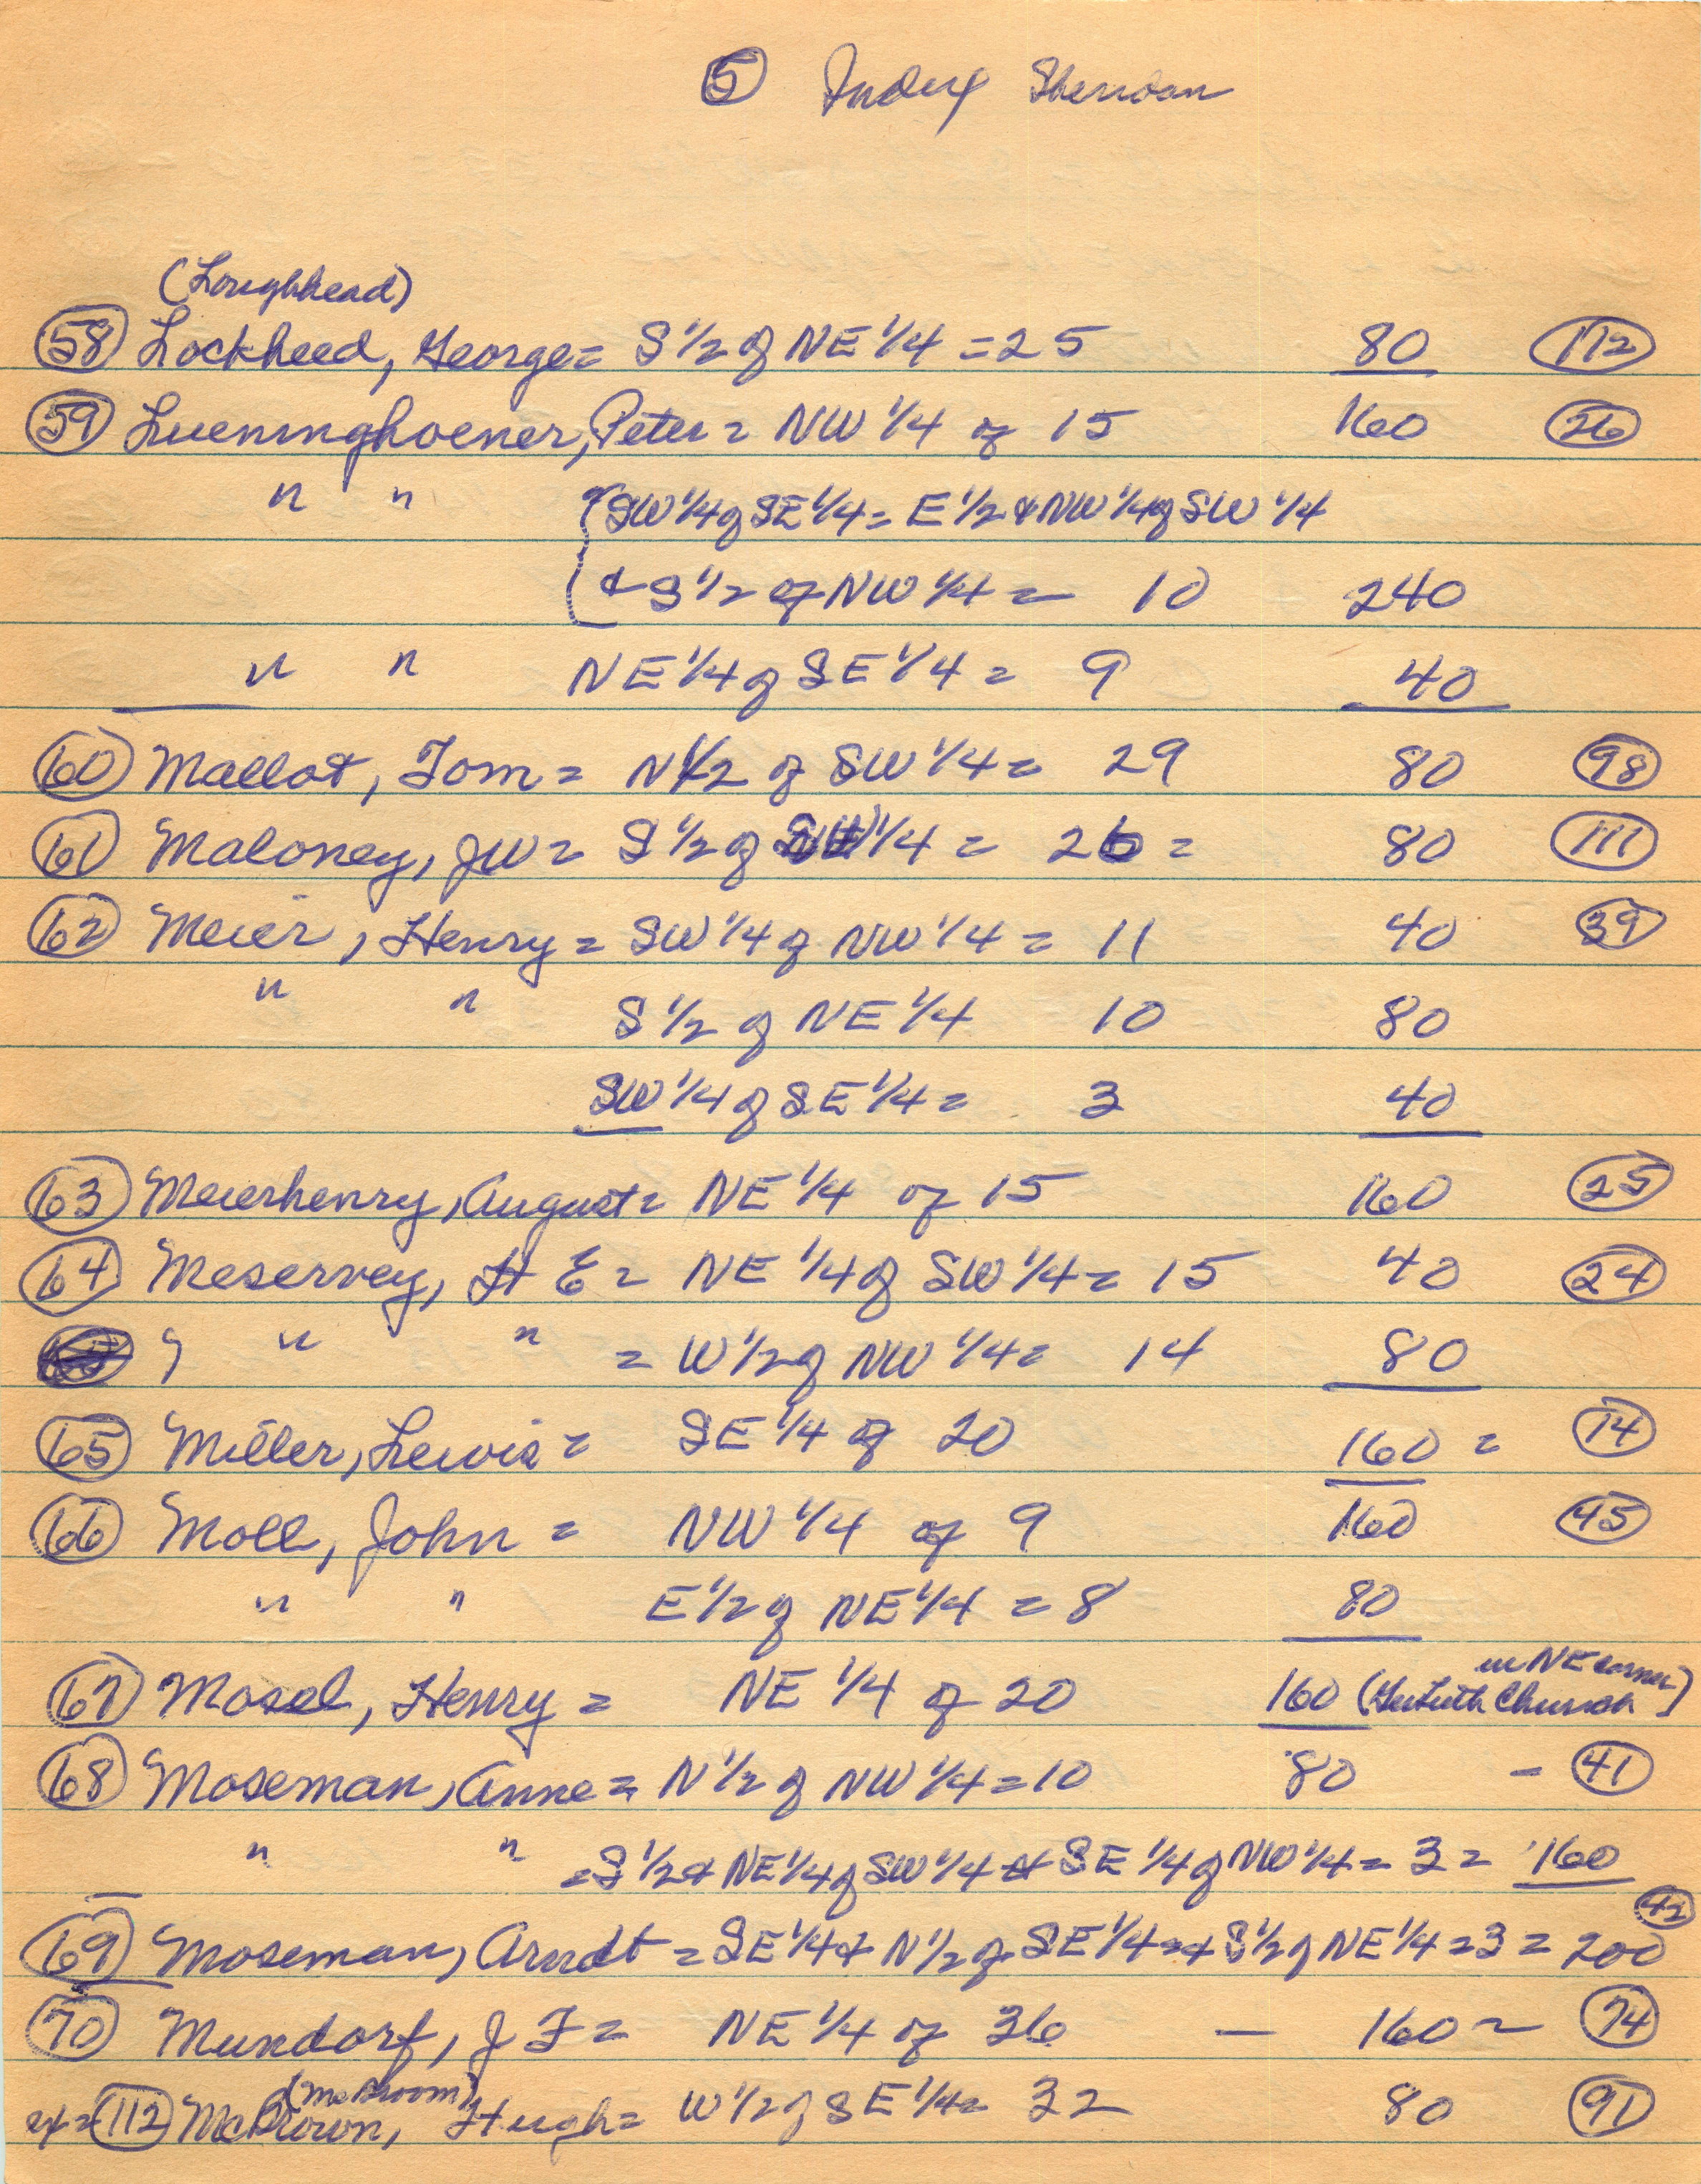 (5) Index Sheridan
(Loughhead)
(58) Lockheed, George = S 1/2 of NE 1/4 = 25 80 (112)
(59) Lueninghoener, Peter = NW 1/4 of 15 160 (26)
" " { SW 1/4 of SE 1/4 = E 1/2 & NW 1/4 of SW 1/4
& S 1/2 of NW 1/4 = 10 240
" " NE 1/4 of SE 1/4 = 9 40
(60) Mallot, Tom = N 1/2 of SW 1/4 = 29 80 (98)
(61) Maloney, JW = S 1/2 of 1/4 = 26 = 80 (111)
(62) Meier, Henry = SW 1/4 of NW 1/4 = 11 40 (39)
" " S 1/2 of NE 1/4 10 80
SW 1/4 of SE 1/4 = 3 40
(63) Meierhenry, August = NE 1/4 of 15 160 (25)
(64) Meservey, H E = NE 1/4 of SW 1/4 = 15 40 (24)
" " = W 1/2 of NW 1/4 = 14 80
(65) Miller, Lewis = SE 1/4 of 20 160 = (14)
(66) Moll, John = NW 1/4 of 9 160 (45)
" " E 1/2 of NE 1/4 = 8 80
in NE corner
(67) Mosel, Henry = NE 1/4 of 20 160 (Luth Church)
(68) Moseman, Anne = N 1/2 of NW 1/4 = 10 80 - (41)
" " = S 1/2 & NE 1/4 of SW 1/4 & SE 1/4 of NW 1/4 = 3 = 160
(42)
(69) Moseman, Arndt = SE 1/4 & N 1/2 of SE 1/4 = & S 1/2 of NE 1/4 = 3 = 200
(70) Mundorf, J F = NE 1/4 of 36 — 160 = (74)
(McBroom)
(112) McBrown, Hugh = W 1/2 of SE 1/4 = 32 80 (91)